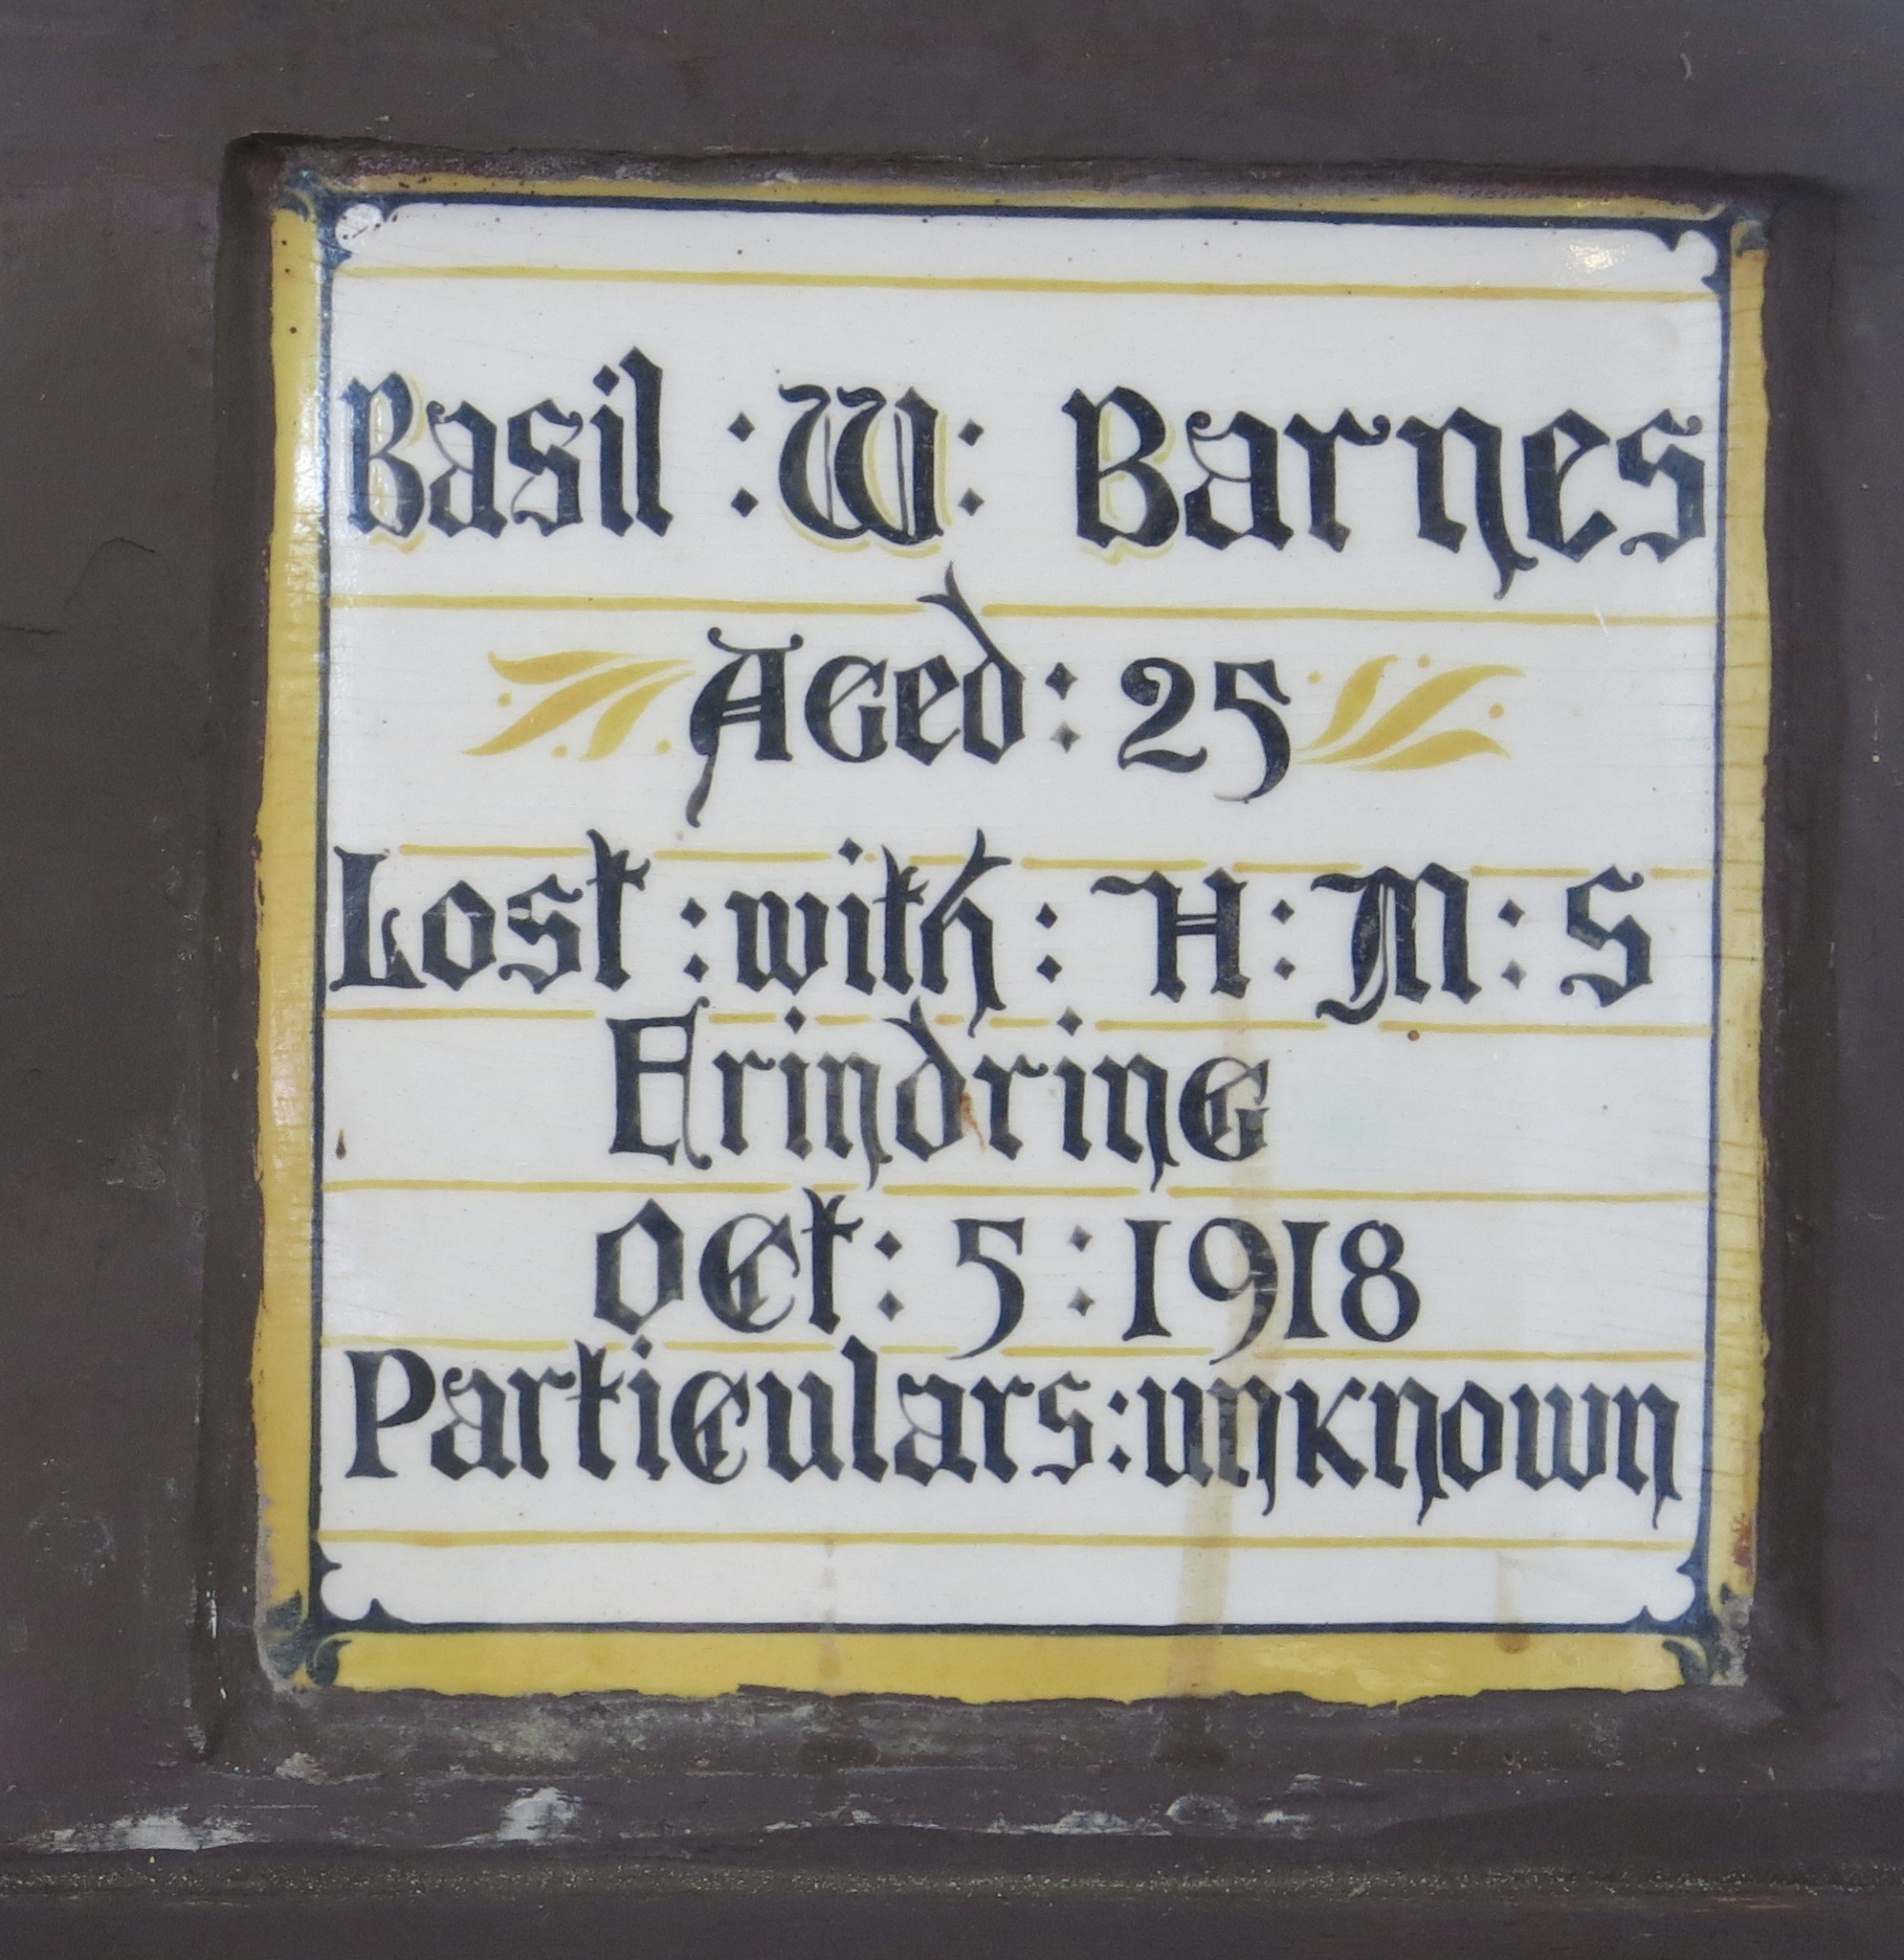 Basil : W : Barnes
Aged : 25
Lost : with : H : M : S
Erindring
Oct : 5 : 1918
Particulars : unknown